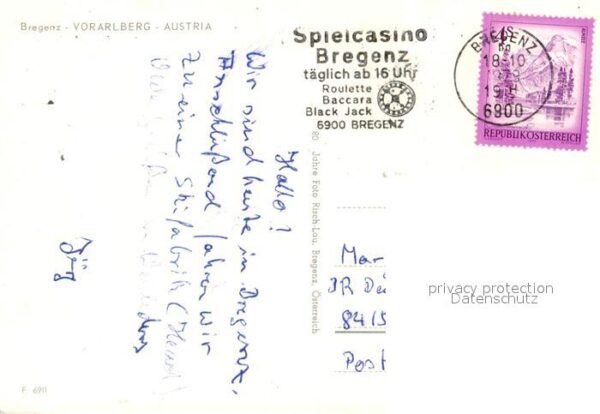 Bregenz - VORARLBERG - AUSTRIA
Hallo!
Wir sind heute in Bregenz.
Anschließend fahren wir
zu einer Skifabrik (Head)
Jörg
F 6911
80 Jahre Foto Risch-Lau, Bregenz, Österreich
Spielcasino
Bregenz
täglich ab 16 Uhr
Roulette
Baccara
Black Jack
6900 BREGENZ
BREGENZ
18-10
1979
19
6900
REPUBLIK ÖSTERREICH
Mar
DR
8415
Post
privacy protection
Datenschutz